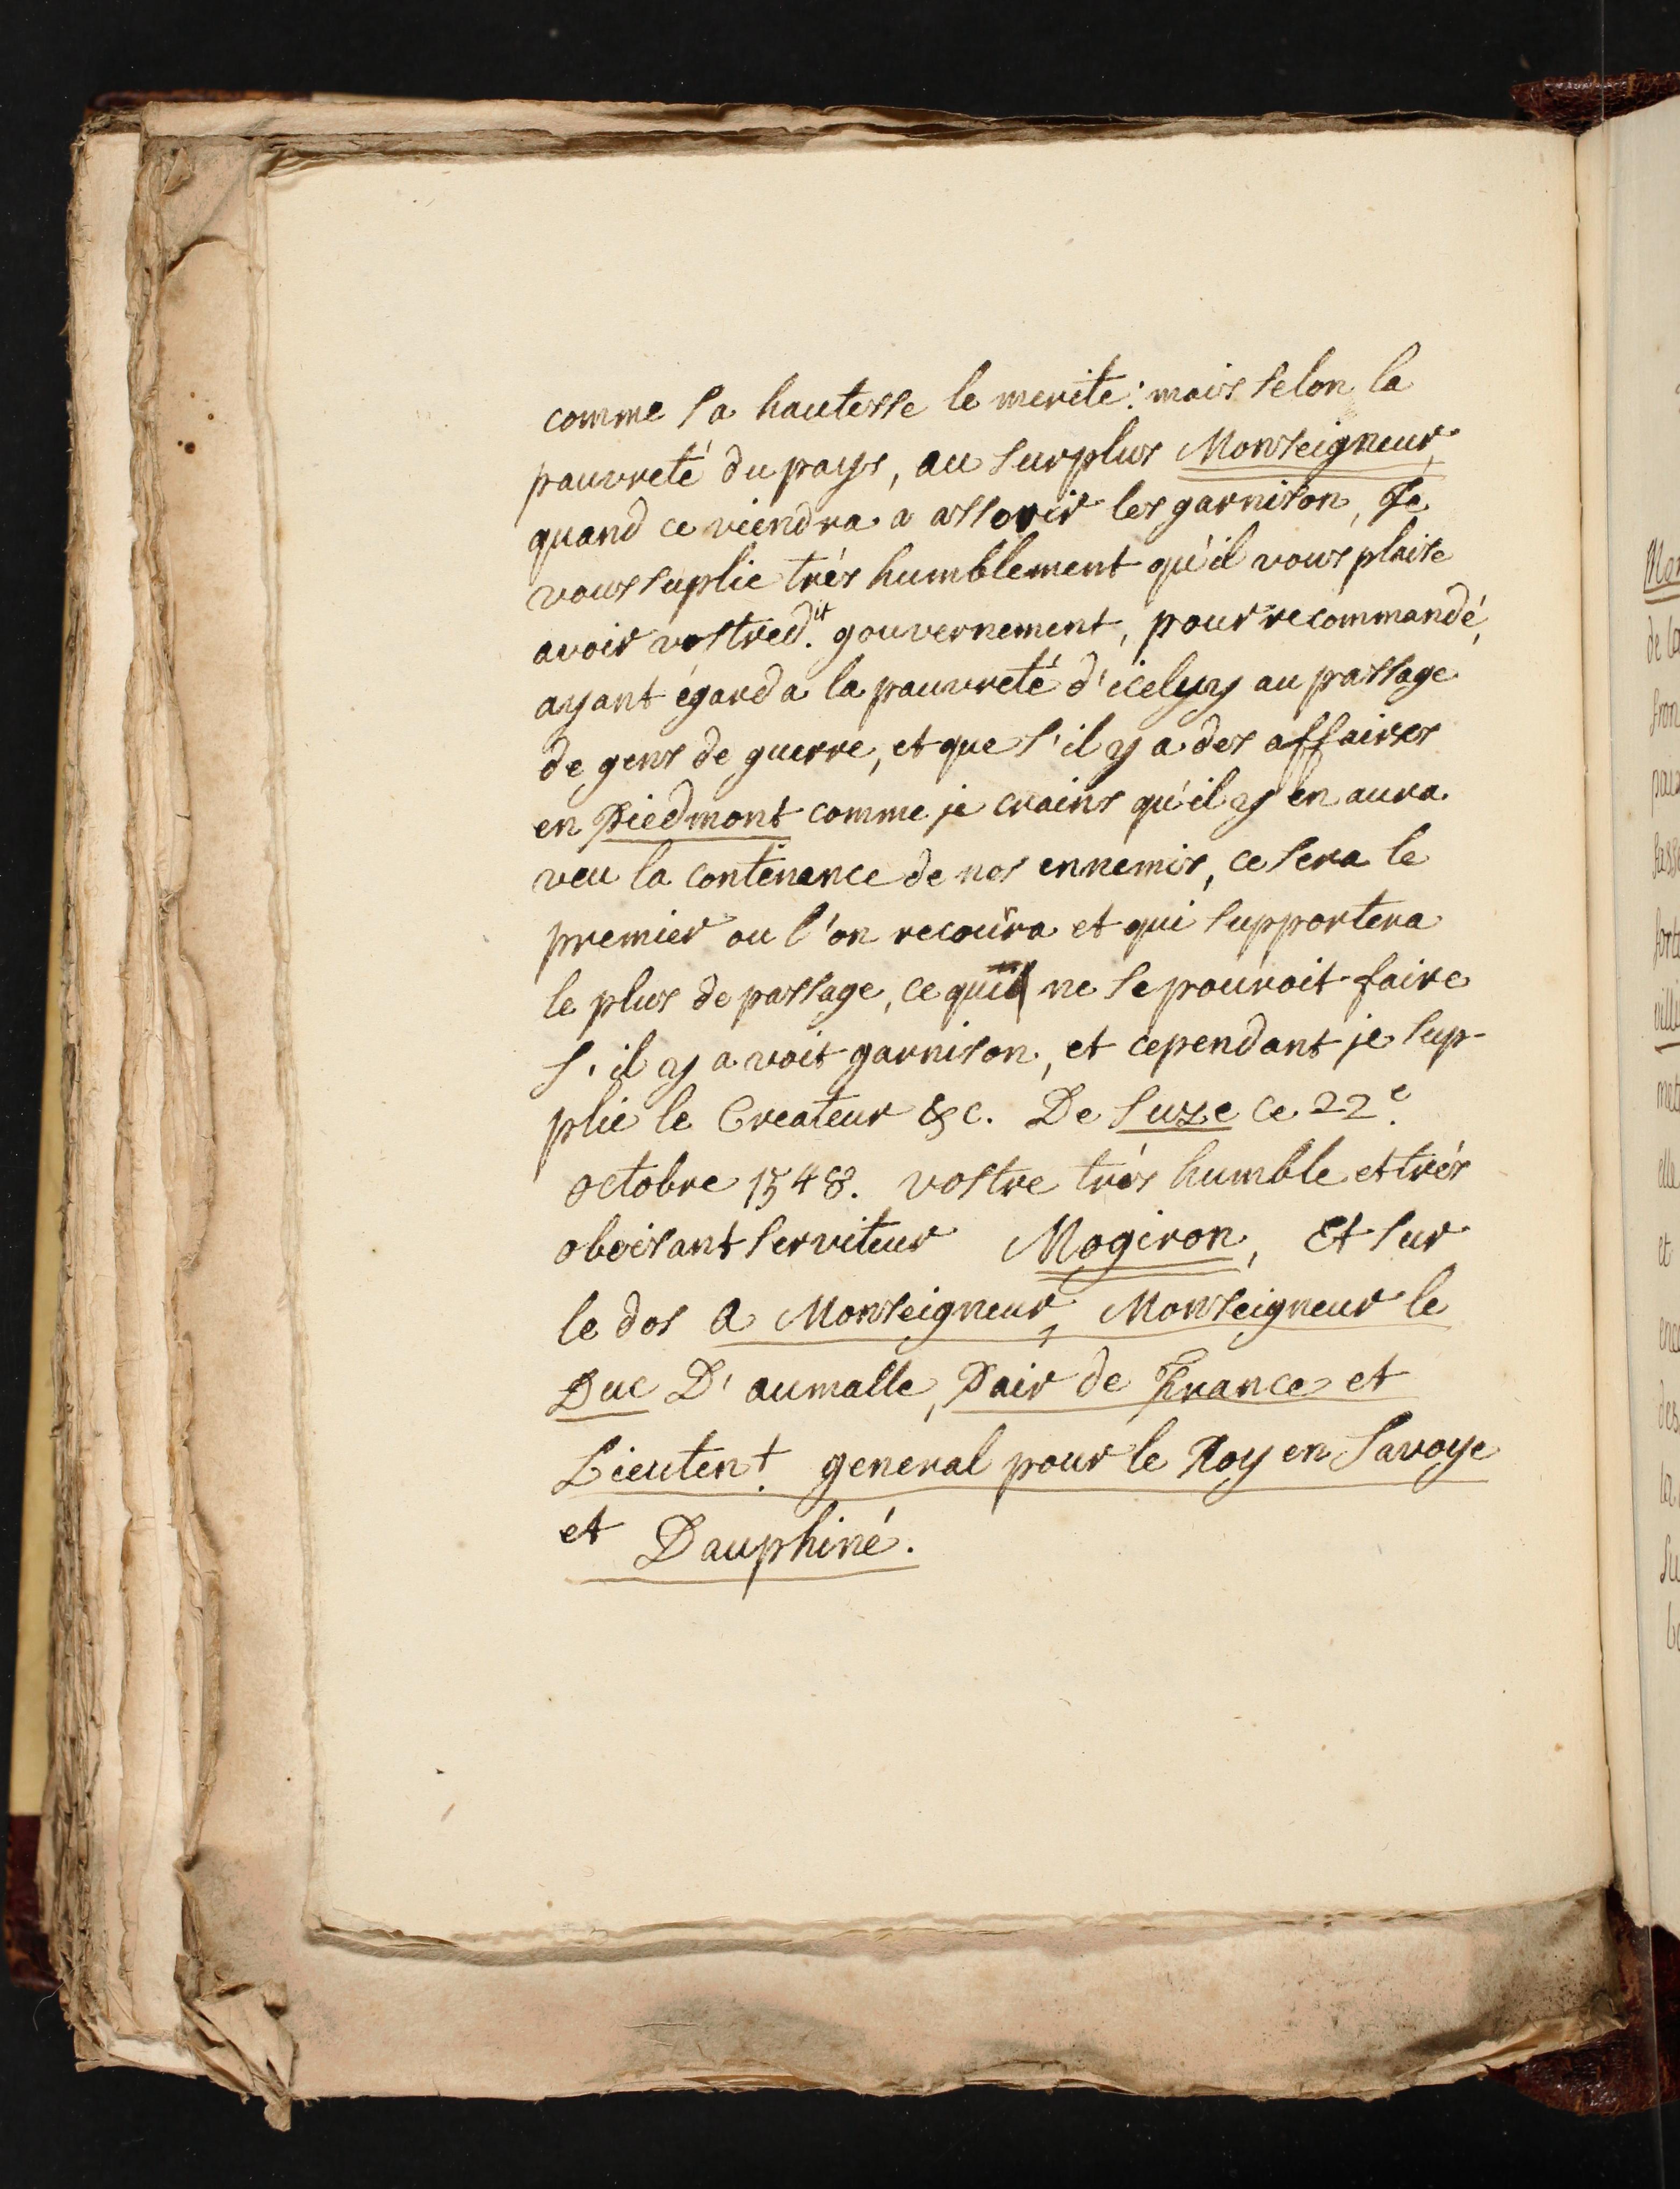 comme sa hautesse le merite: mais selon la
pauvreté du pays, au surplus Monseigneur,
quand ce viendra a assorir les garnison, Je
vous suplie trés humblement qu'il vous plaise
avoir vostred.it gouvernement, pour recommandé,
ayant égard a la pauvreté d'iceluy au passage
de gens de guerre, et que s'il y a des affaires
en Piedmont comme je crains qu'il y en aura
veu la contenance de nos ennemis, ce sera le
premier ou l'on recoura et qui supportera
le plus de passage, ce qui ne se pouroit faire
s'il y avoit garnison, et cependant je sup-
plie le Createur &c. De Suze ce 22.e
octobre 1548. vostre trés humble et trés
obeisant serviteur Mogiron, Et sur
le dos a Monseigneur, Monseigneur le
Duc D'aumalle, Pair de France et
Lieuten.t general pour le Roy en Savoye
et Dauphiné.